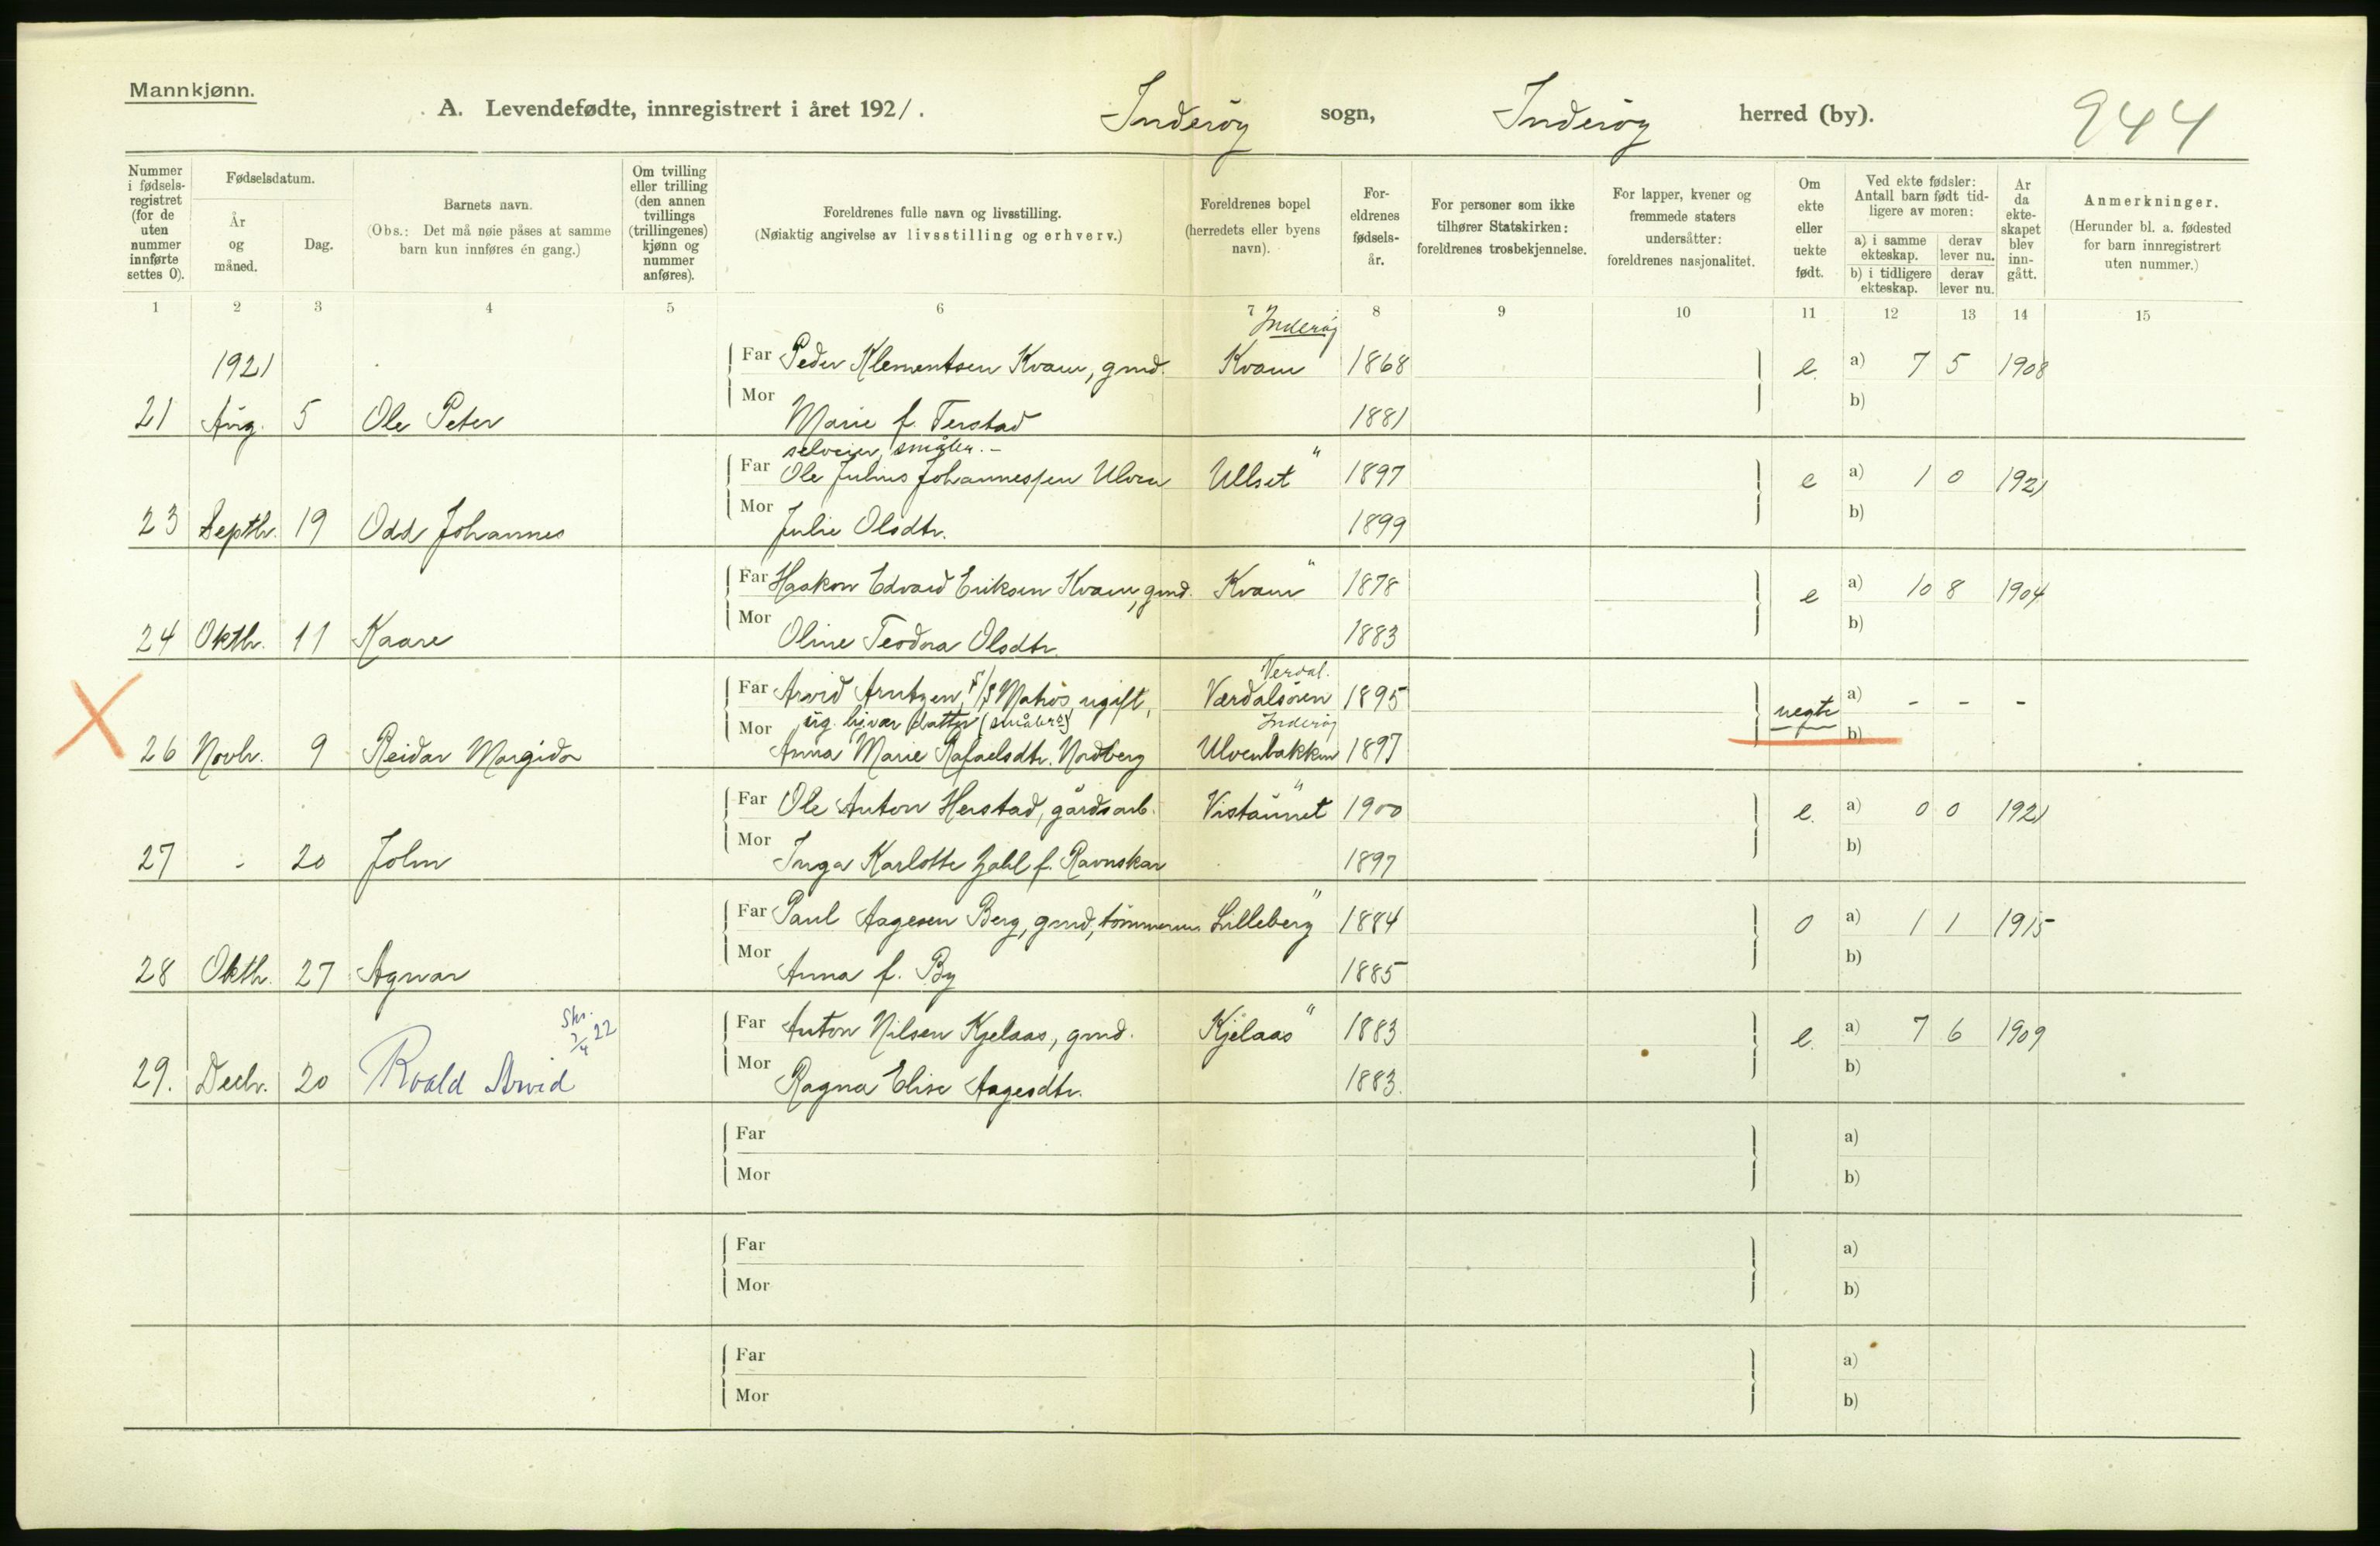 Mannkjønn.
A. Levendefødte, innregistrert i året 1921. Inderøy sogn, Inderøy herred (by). 944
Nummer i fødselsregistret (for de uten nummer innførte settes 0).
Fødselsdatum.
År og måned.
Dag.
Barnets navn.
(Obs.: Det må nøie påses at samme barn kun innføres én gang.)
Om tvilling eller trilling (den annen tvillings (trillingenes) kjønn og nummer anføres).
Foreldrenes fulle navn og livsstilling.
(Nøiaktig angivelse av livsstilling og erhverv.)
Foreldrenes bopel (herredets eller byens navn).
Foreldrenes fødselsår.
For personer som ikke tilhører Statskirken: foreldrenes trosbekjennelse.
For lapper, kvener og fremmede staters undersåtter: foreldrenes nasjonalitet.
Om ekte eller uekte født.
Ved ekte fødsler: Antall barn født tidligere av moren:
a) i samme ekteskap. derav lever nu.
b) i tidligere ekteskap. derav lever nu.
Ar da ekteskapet blev inngått.
Anmerkninger.
(Herunder bl. a. fødested for barn innregistrert uten nummer.)
1 2 3 4 5 6 7 8 9 10 11 12 13 14 15
Inderøy
1921 Far Peder Klementsen Kvam, grnd. Kvam 1868 e. a) 7 5 1908
21 Aug. 5 Ole Peter Mor Marie f. Terstad 1881 b)
selveier, småbr. -
Far Ole Julius Johannessen Ulven Ullset " 1897 e a) 1 0 1921
23 Septbr. 19 Odd Johannes Mor Julie Olsdtr. 1899 b)
Far Haakon Edvard Eriksen Kvam, grnd. Kvam " 1878 e a) 10 8 1904
24 Oktbr. 11 Kaare Mor Oline Teodora Olsdtr. 1883 b)
Verdal.
Far Arvid Arntzen, Matros, ugift, Værdalsøren 1895 uegte a) - - -
ug. hjvær. datter (småbr.) Inderøy
26 Novbr. 9 Reidar Margido Mor Anna Marie Rafaelsdtr. Nordberg Ulvenbakken 1897 b)
Far Ole Anton Herstad, gårdsarb. Vistaunet " 1900 e. a) 0 0 1921
27 - 20 John Mor Inga Karlotte Zahl f. Ravnskar 1897 b)
Far Paul Aagesen Berg, grnd, tømmerm. Lilleberg " 1884 0 a) 1 1 1915
28 Oktbr. 27 Agnar Mor Anna f. By 1885 b)
Skr. 3/4 22
Far Anton Nilsen Kjelaas, grnd. Kjelaas " 1883 e. a) 7 6 1909
29. Decbr. 20 Roald Arvid Mor Ragna Elise Aagesdtr. 1883. b)
Far a)
Mor b)
Far a)
Mor b)
Far a)
Mor b)